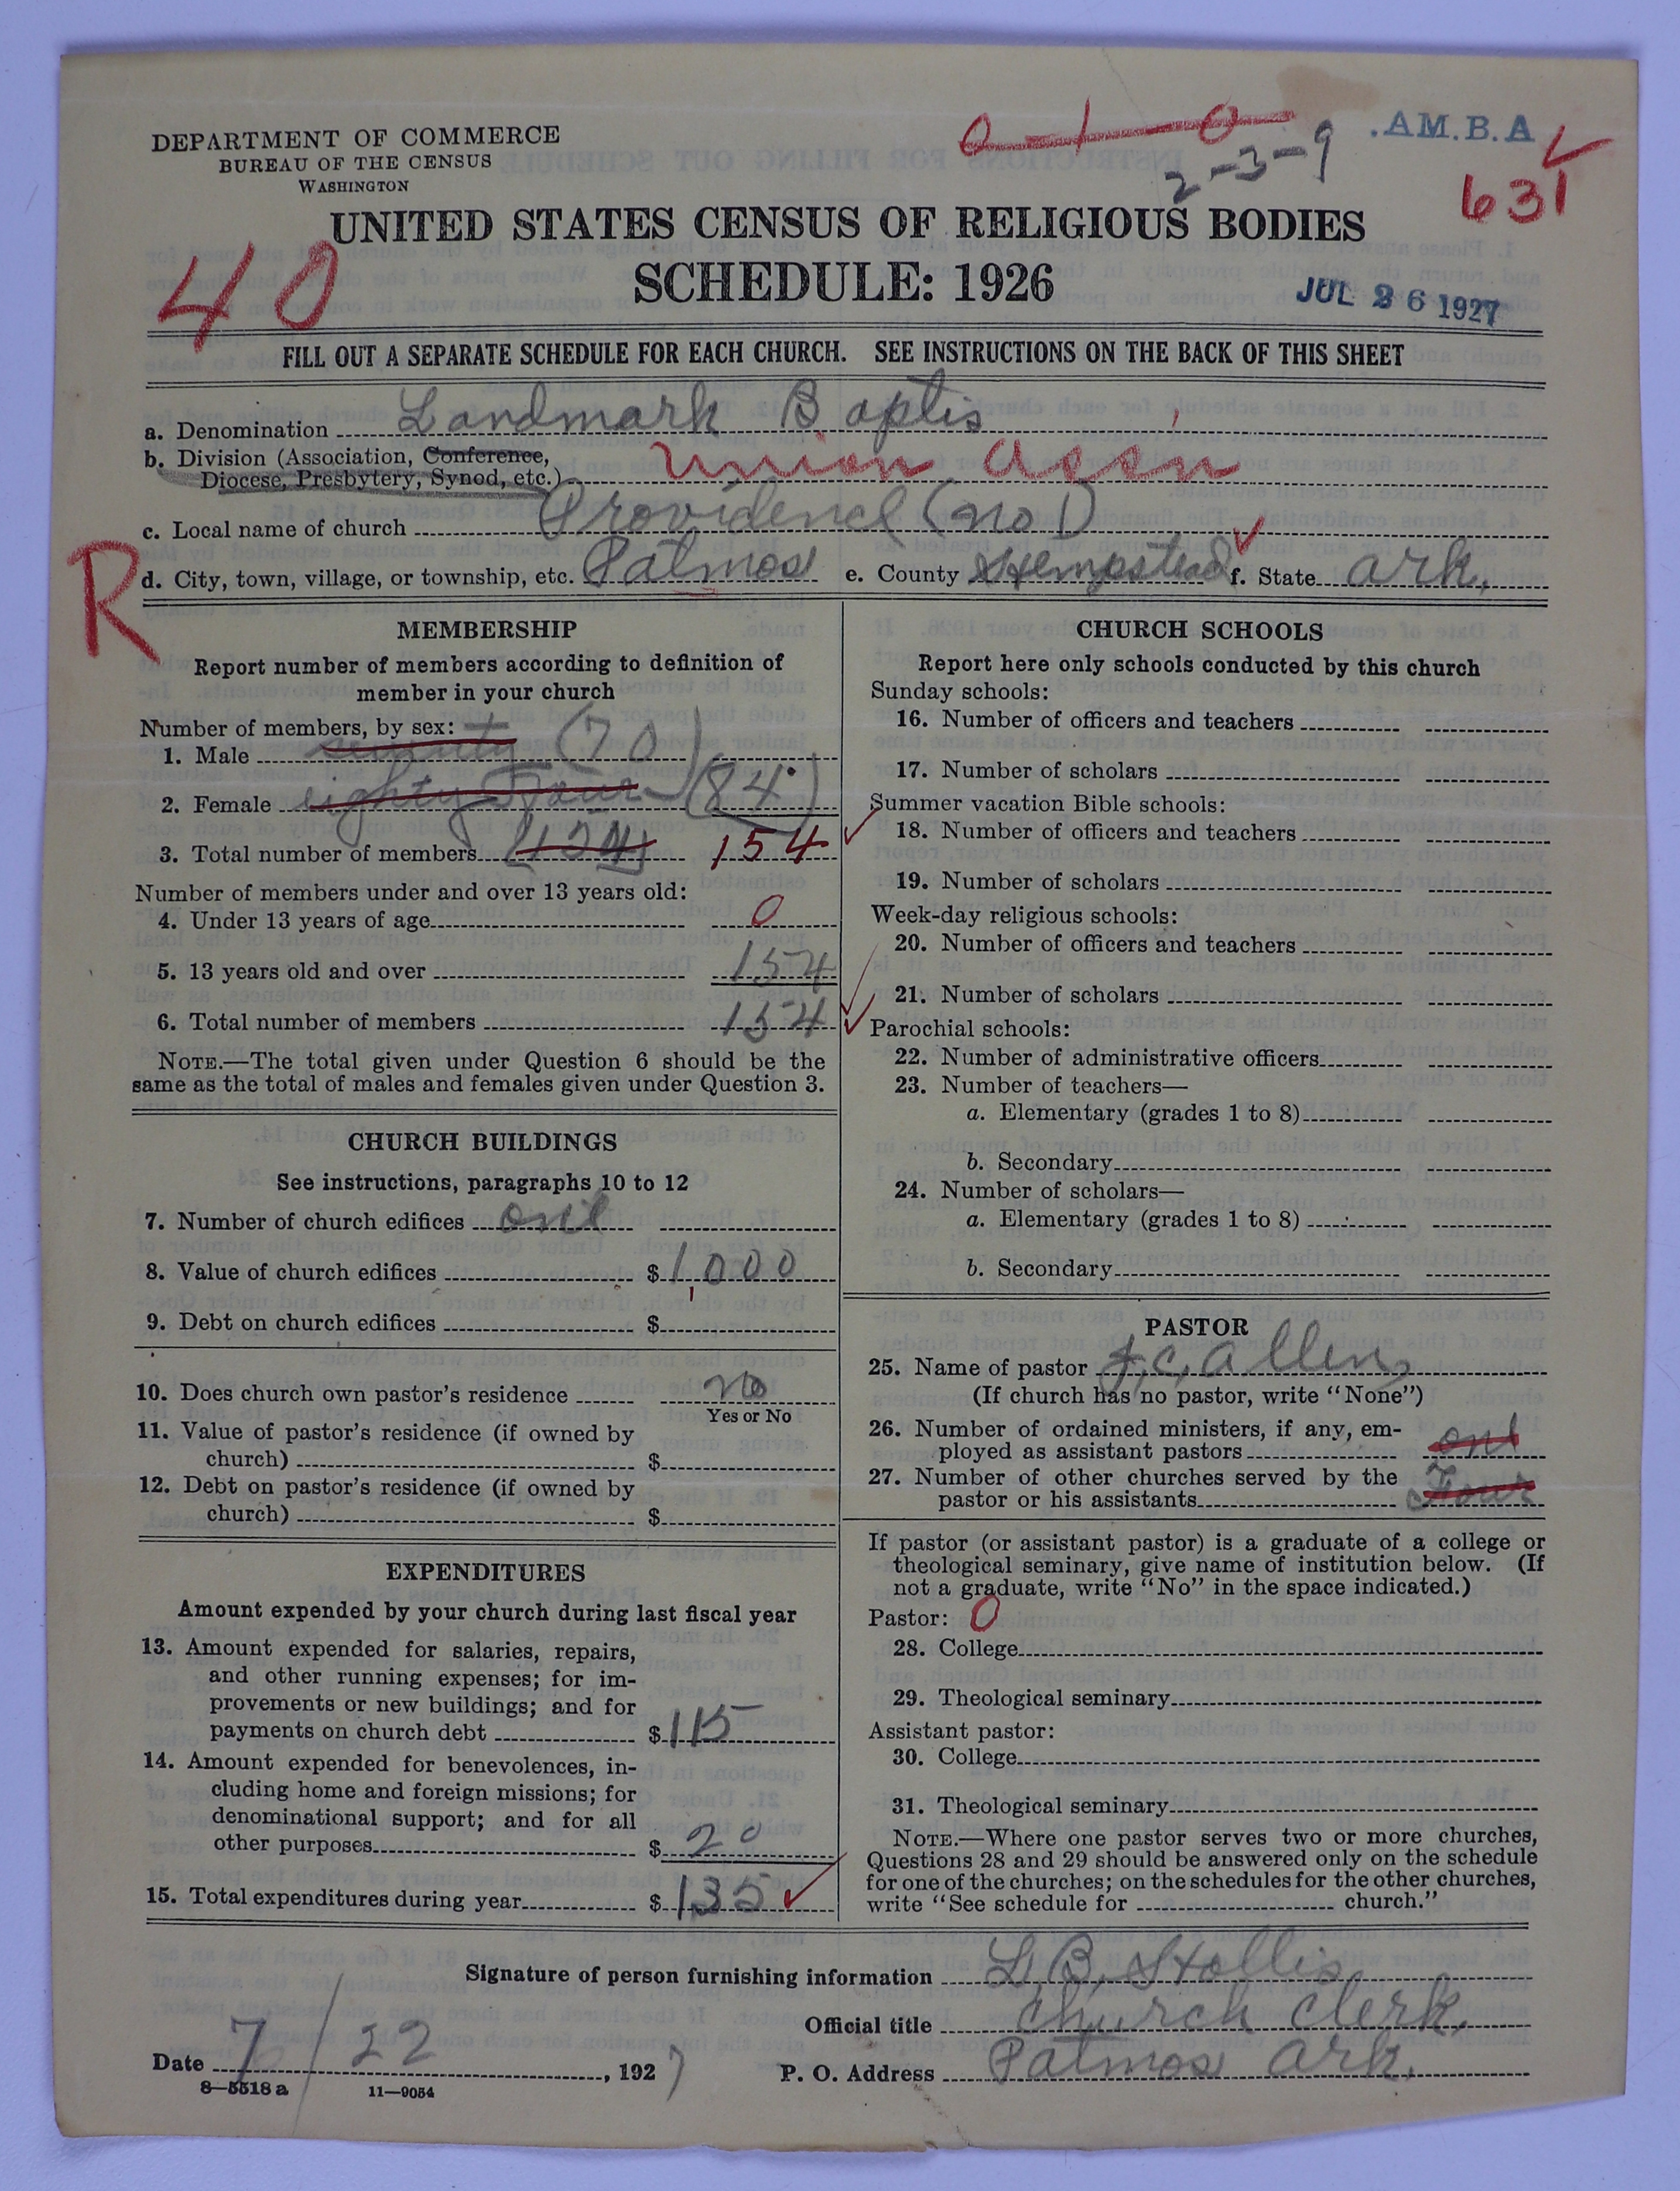 DEPARTMENT OF COMMERCE
BUREAU OF THE CENSUS
WASHINGTON
0—1—0
2-3-9
.AM.B.A
631
UNITED STATES CENSUS OF RELIGIOUS BODIES
SCHEDULE: 1926
40
JUL 26 1927
FILL OUT A SEPARATE SCHEDULE FOR EACH CHURCH. SEE INSTRUCTIONS ON THE BACK OF THIS SHEET
a. Denomination Landmark Baptis
b. Division (Association, Conference,
Diocese, Presbytery, Synod, etc.) Union Ass'n
c. Local name of church Providence (no 1)
R
d. City, town, village, or township, etc. Patmos e. County Hempstead f. State Ark,
MEMBERSHIP
Report number of members according to definition of
member in your church
Number of members, by sex:
1. Male seventy (70)
2. Female eighty Four (84)
3. Total number of members (154) 154
Number of members under and over 13 years old:
4. Under 13 years of age 0
5. 13 years old and over 154
6. Total number of members 154
NOTE.—The total given under Question 6 should be the
same as the total of males and females given under Question 3.
CHURCH BUILDINGS
See instructions, paragraphs 10 to 12
7. Number of church edifices one
8. Value of church edifices $1000
9. Debt on church edifices $
10. Does church own pastor's residence no
Yes or No
11. Value of pastor's residence (if owned by
church) $
12. Debt on pastor's residence (if owned by
church) $
EXPENDITURES
Amount expended by your church during last fiscal year
13. Amount expended for salaries, repairs,
and other running expenses; for im-
provements or new buildings; and for
payments on church debt $115
14. Amount expended for benevolences, in-
cluding home and foreign missions; for
denominational support; and for all
other purposes $20
15. Total expenditures during year $135
CHURCH SCHOOLS
Report here only schools conducted by this church
Sunday schools:
16. Number of officers and teachers
17. Number of scholars
Summer vacation Bible schools:
18. Number of officers and teachers
19. Number of scholars
Week-day religious schools:
20. Number of officers and teachers
21. Number of scholars
Parochial schools:
22. Number of administrative officers
23. Number of teachers—
a. Elementary (grades 1 to 8)
b. Secondary
24. Number of scholars—
a. Elementary (grades 1 to 8)
b. Secondary
PASTOR
25. Name of pastor J.C. Allen
(If church has no pastor, write "None")
26. Number of ordained ministers, if any, em-
ployed as assistant pastors one
27. Number of other churches served by the
pastor or his assistants Four
If pastor (or assistant pastor) is a graduate of a college or
theological seminary, give name of institution below. (If
not a graduate, write "No" in the space indicated.)
Pastor: 0
28. College
29. Theological seminary
Assistant pastor:
30. College
31. Theological seminary
NOTE.—Where one pastor serves two or more churches,
Questions 28 and 29 should be answered only on the schedule
for one of the churches; on the schedules for the other churches,
write "See schedule for church."
Signature of person furnishing information L B, Hollis
Official title church clerk,
Date 7/22, 1927 P. O. Address Patmos Ark.
8—5518 a 11—9054